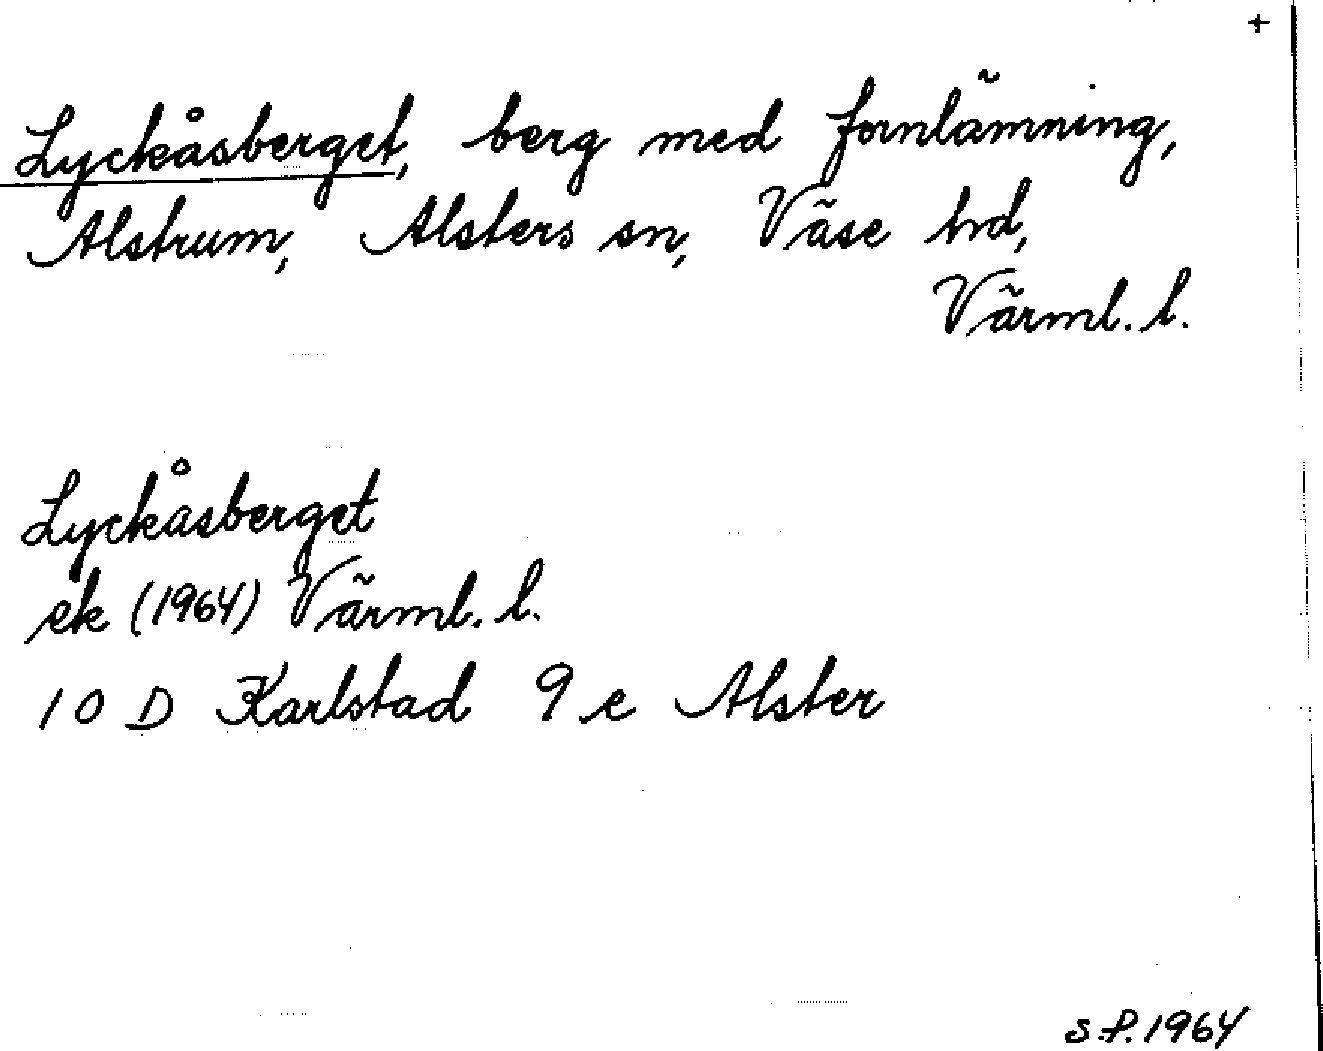 +
Lyckåsberget, berg med fornlämning,
Alstrum, Alsters sn, Väse hd,
Värml. l.
Lyckåsberget
ek (1964) Värml. l.
10 D Karlstad 9 e Alster
S.P. 1964